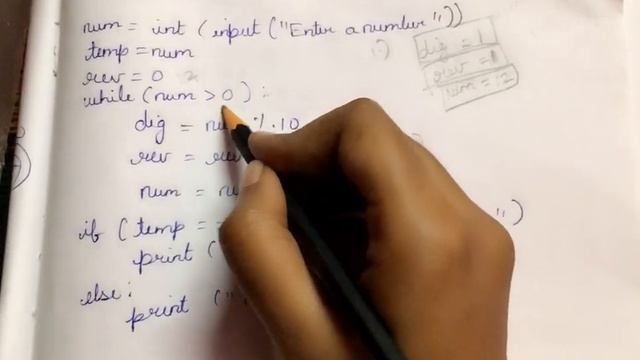 num = int (input ("Enter a number"))
temp = num
rev = 0
while (num > 0) :
dig = nu % 10
rev = rev
num = nu
if ( temp = =
print (
")
else :
print ("
dig = 1
rev =
num = 12